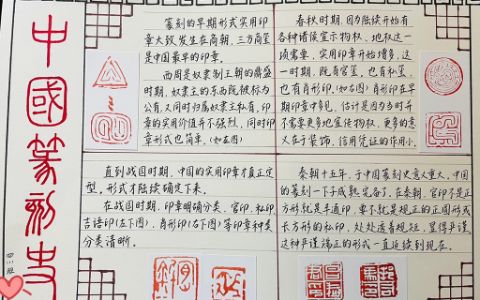 中國篆刻史
篆刻的早期形式实用印
章大致发生在商朝,三方商玺
是中国最早的印章。
西周是奴隶制王朝的鼎盛
时期,奴隶主的东西既被标为
公有,又同时归属奴隶主私有,印
章的实用价值并不强烈,同时印
章形式也简单。(如右图)
春秋时期,因为陆续开始有
各种诸侯宣示物权、地权这一
项需要,实用印章开始增多,这
一时期,既有官玺,也有私玺,
也有肖形印。(如右图)肖形印在早
期印章中多见,估计是因为当时并
不需要更多地宣传物权,更多的意
义在于装饰,信用凭证的作用小。
直到战国时期,中国的实用印章才真正定
型,形式才陆续确定下来。
在战国时期,印章明确分类,官印、私印、
吉语印(左下图)、肖形印(左下图)等印章种类
分类清晰。
秦朝十五年,于中国篆刻史意义重大,中国
的篆刻一下子成熟完备了,在秦朝,官印不是正
方形就是半通印,要不就是规正的正圆形或
长方形的私印,处处透着规矩,显得严谨
这种严谨端正的形式一直延续到现在。